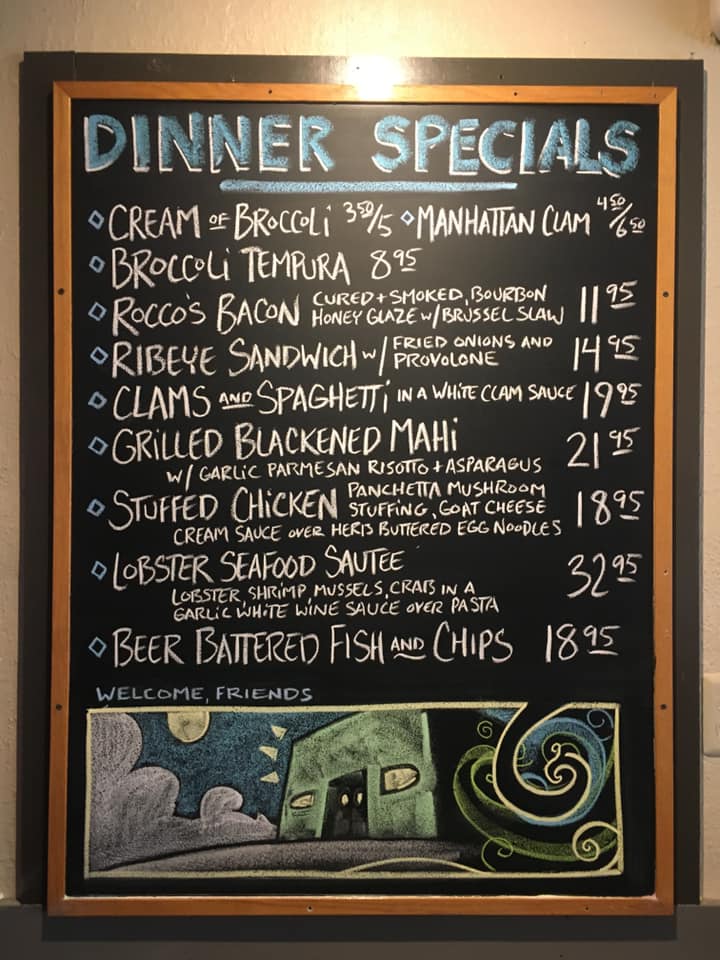 DINNER SPECIALS
CREAM OF BROCCOLI 3⁵⁰/5 MANHATTAN CLAM 4⁵⁰/6⁵⁰
BROCCOLI TEMPURA 8⁹⁵
ROCCO'S BACON CURED + SMOKED, BOURBON
HONEY GLAZE W/ BRUSSEL SLAW 11⁹⁵
RIBEYE SANDWICH W/ FRIED ONIONS AND
PROVOLONE 14⁹⁵
CLAMS AND SPAGHETTI IN A WHITE CLAM SAUCE 19⁹⁵
GRILLED BLACKENED MAHI 21⁹⁵
W/ GARLIC PARMESAN RISOTTO + ASPARAGUS
STUFFED CHICKEN PANCHETTA MUSHROOM
STUFFING, GOAT CHEESE 18⁹⁵
CREAM SAUCE OVER HERB BUTTERED EGG NOODLES
LOBSTER SEAFOOD SAUTEE 32⁹⁵
LOBSTER, SHRIMP, MUSSELS, CRAB IN A
GARLIC WHITE WINE SAUCE OVER PASTA
BEER BATTERED FISH AND CHIPS 18⁹⁵
WELCOME, FRIENDS